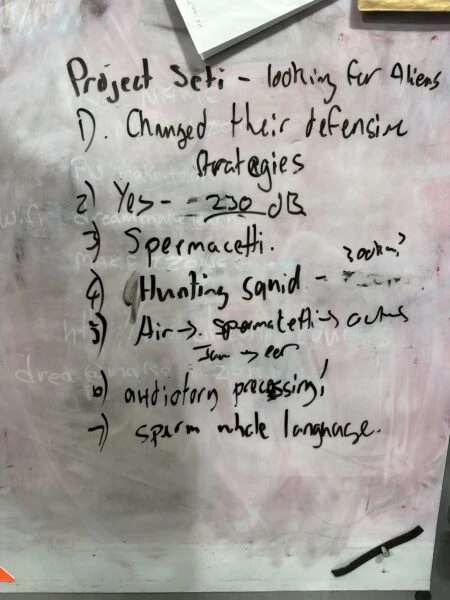 Project Seti - looking for Aliens
1). Changed their defensive
strategies
2) Yes - 230 dB
3) Spermacetti.
300km?
4) Hunting squid -
5) Air → Spermacetti →
Jaw → ear
6) audiotory processing!
7) sperm whale language.